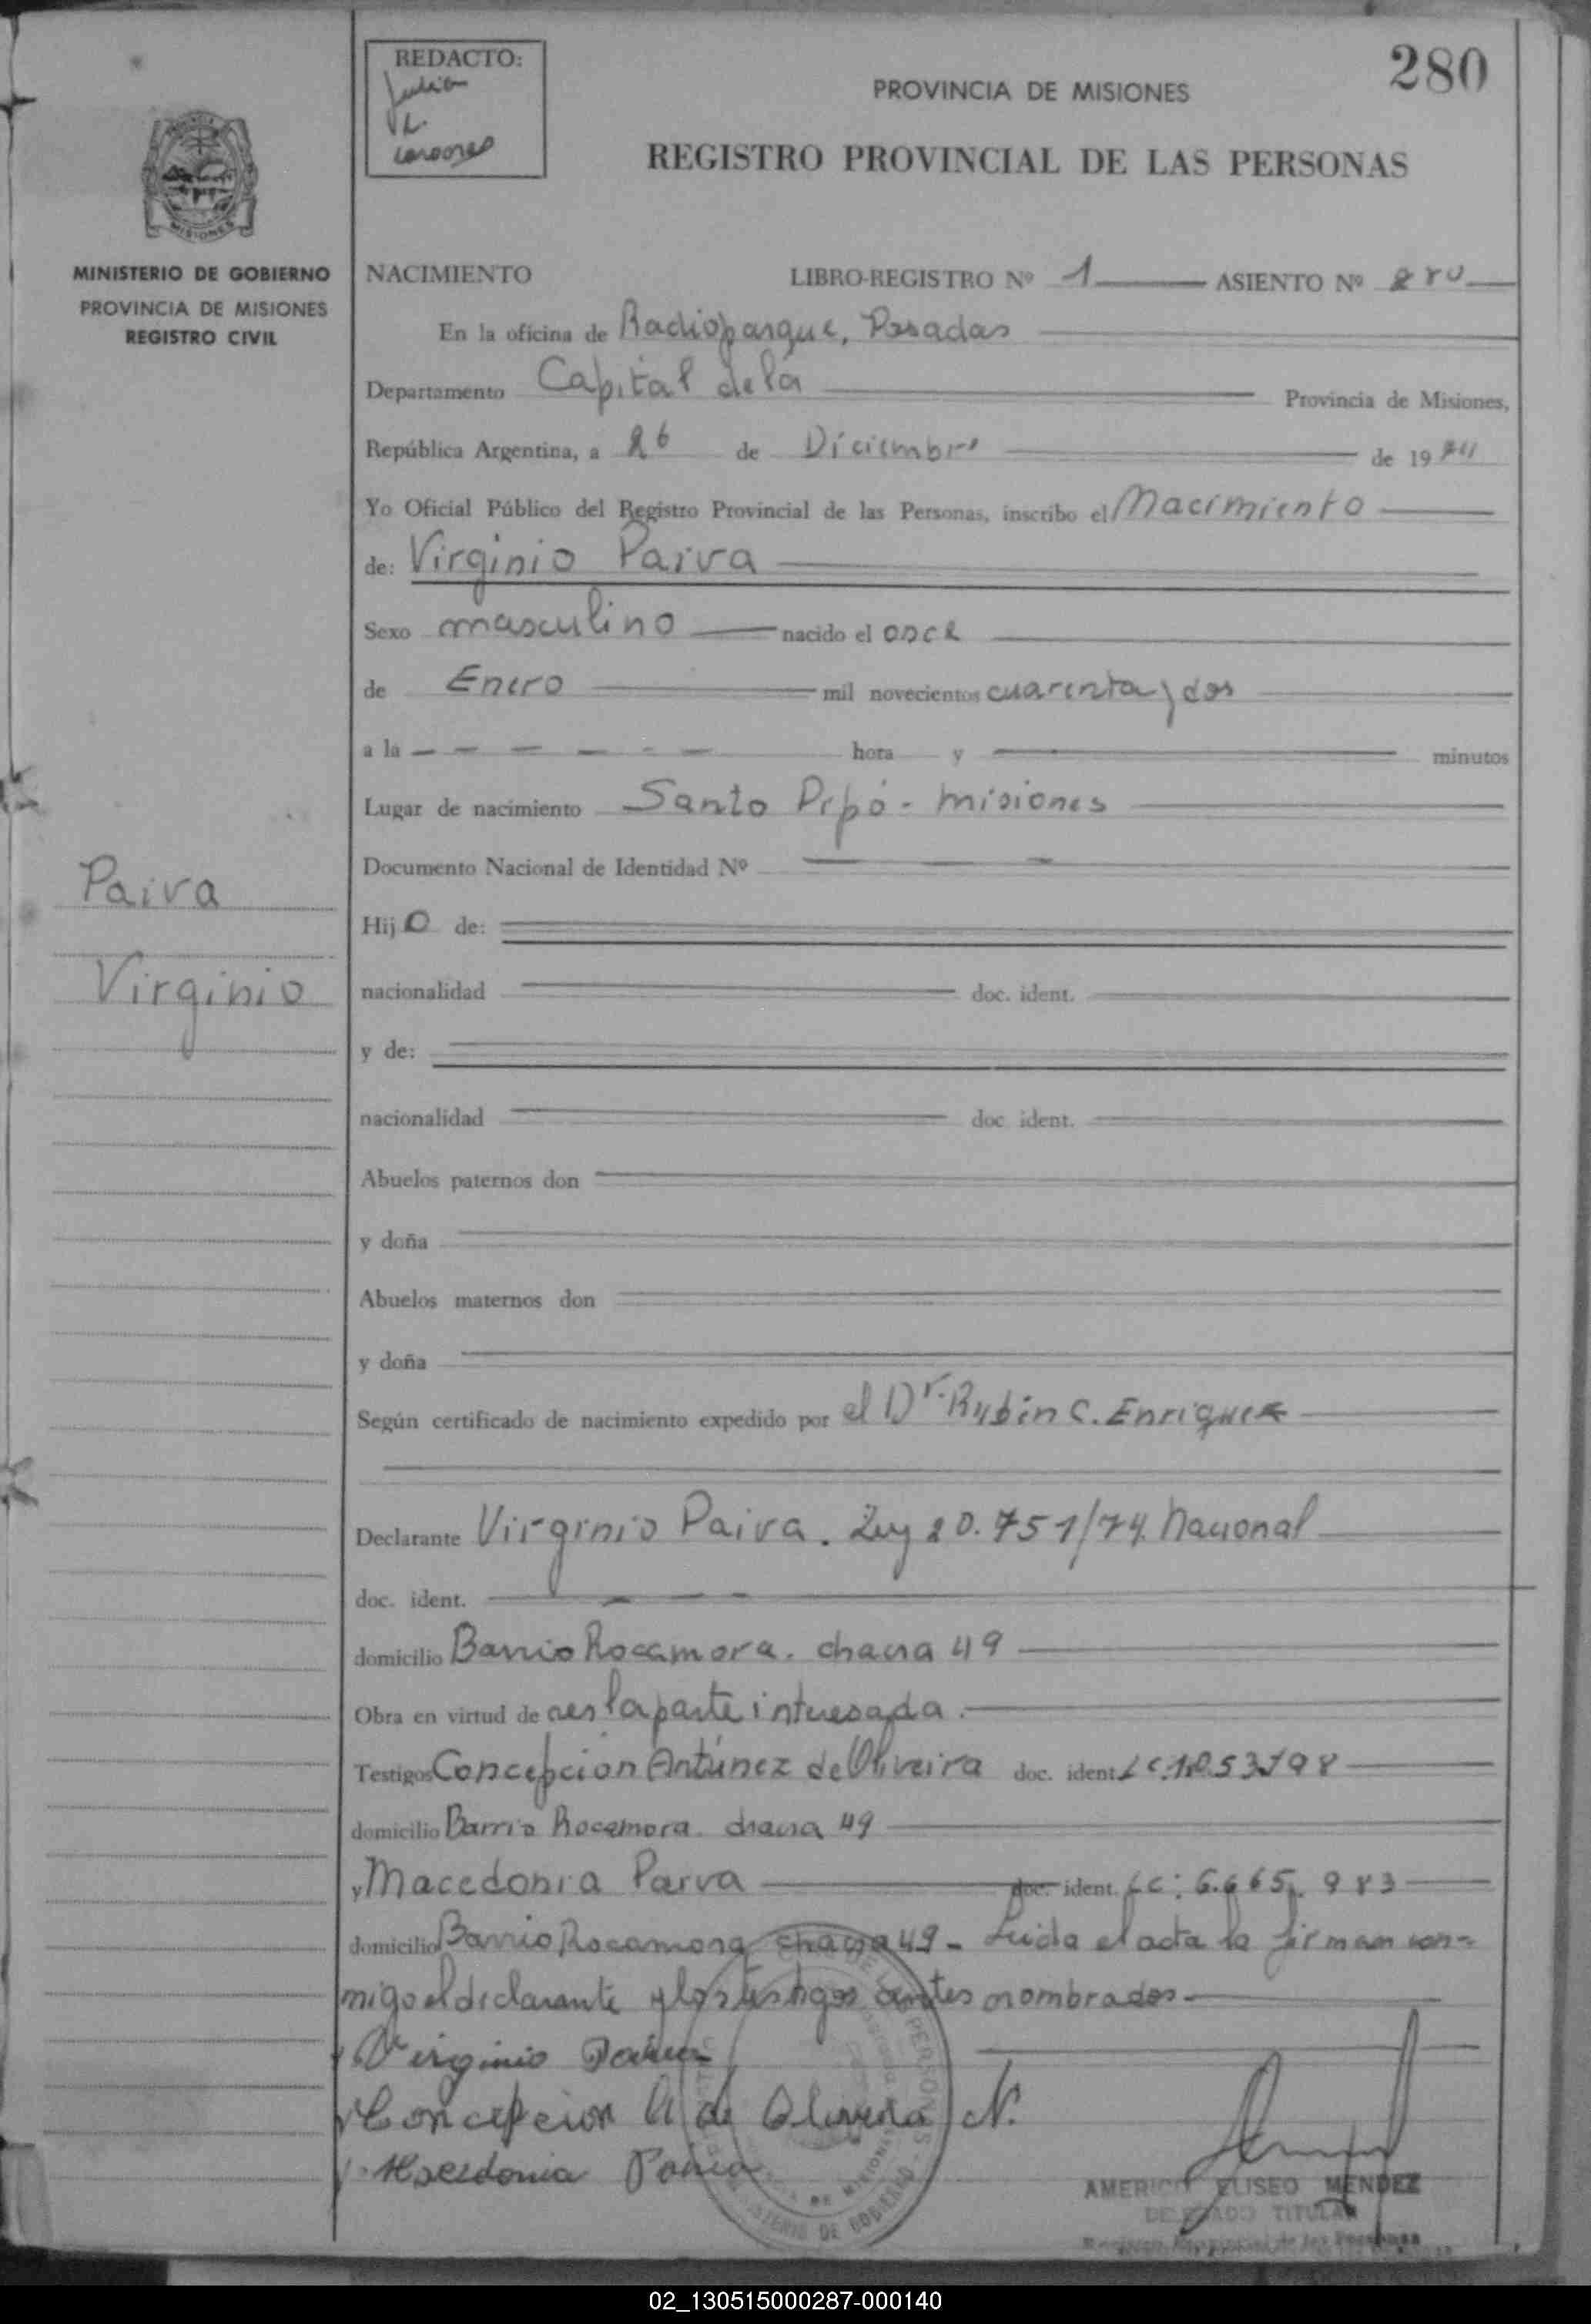 REDACTO:
280
PROVINCIA DE MISIONES
REGISTRO PROVINCIAL DE LAS PERSONAS
MISIONES
MINISTERIO DE GOBIERNO
PROVINCIA DE MISIONES
REGISTRO CIVIL
NACIMIENTO LIBRO-REGISTRO Nº 1 ASIENTO Nº 280
En la oficina de Radioparque, Posadas
Departamento Capital de la Provincia de Misiones,
República Argentina, a 26 de Diciembre de 1974
Yo Oficial Público del Registro Provincial de las Personas, inscribo el Nacimiento
de: Virginio Paiva
Sexo masculino nacido el once
de Enero mil novecientos cuarenta y dos
a la — — — — — — hora y minutos
Lugar de nacimiento Santo Pipó - Misiones
Documento Nacional de Identidad Nº — — —
Paiva
Virginio
Hijo de:
nacionalidad doc. ident.
y de:
nacionalidad doc. ident.
Abuelos paternos don
y doña
Abuelos maternos don
y doña
Según certificado de nacimiento expedido por el Dr. Rubén C. Enriquez
Declarante Virginio Paiva. Ley 20.751/74. Nacional
doc. ident. — — —
domicilio Barrio Rocamora. chacra 49
Obra en virtud de ser la parte interesada.
Testigos Concepcion Antúnez de Oliveira doc. ident.
domicilio Barrio Rocamora. chacra 49
y Macedonia Paiva doc. ident. LC: 6.665.983
domicilio Barrio Rocamora chacra 49 - Leida el acta la firman con-
migo el declarante y los testigos antes nombrados.
Virginio Paiva
Concepcion A de Oliveira N.
Macedonia Paiva
AMERICO ELISEO MENDEZ
DELEGADO TITULAR
Registro Provincial de las Personas
02_130515000287-000140